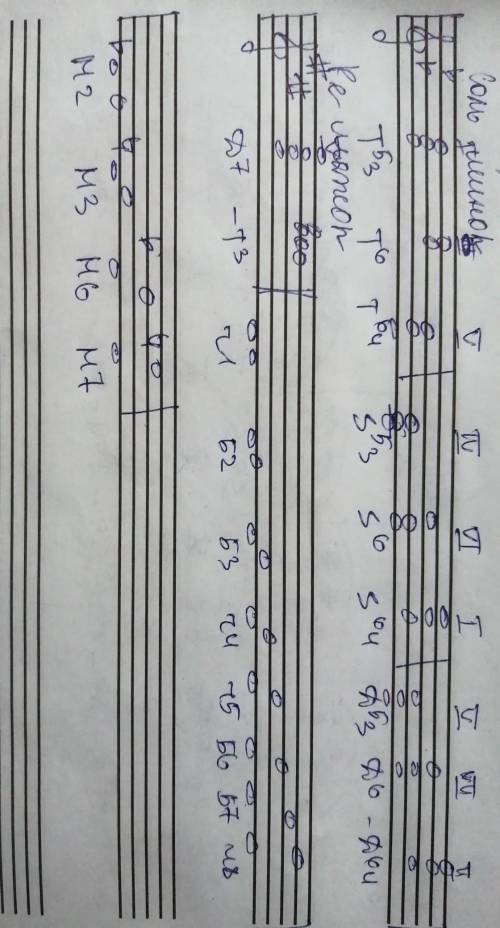 Соль минор
V IV VI I V VII II
T5/3 T6 T6/4 S5/3 S6 S6/4 Д5/3 Д6 - Д6/4
Ре мажор
Д7 - T3 ч1 б2 б3 ч4 ч5 б6 б7 ч8
м2 м3 м6 м7